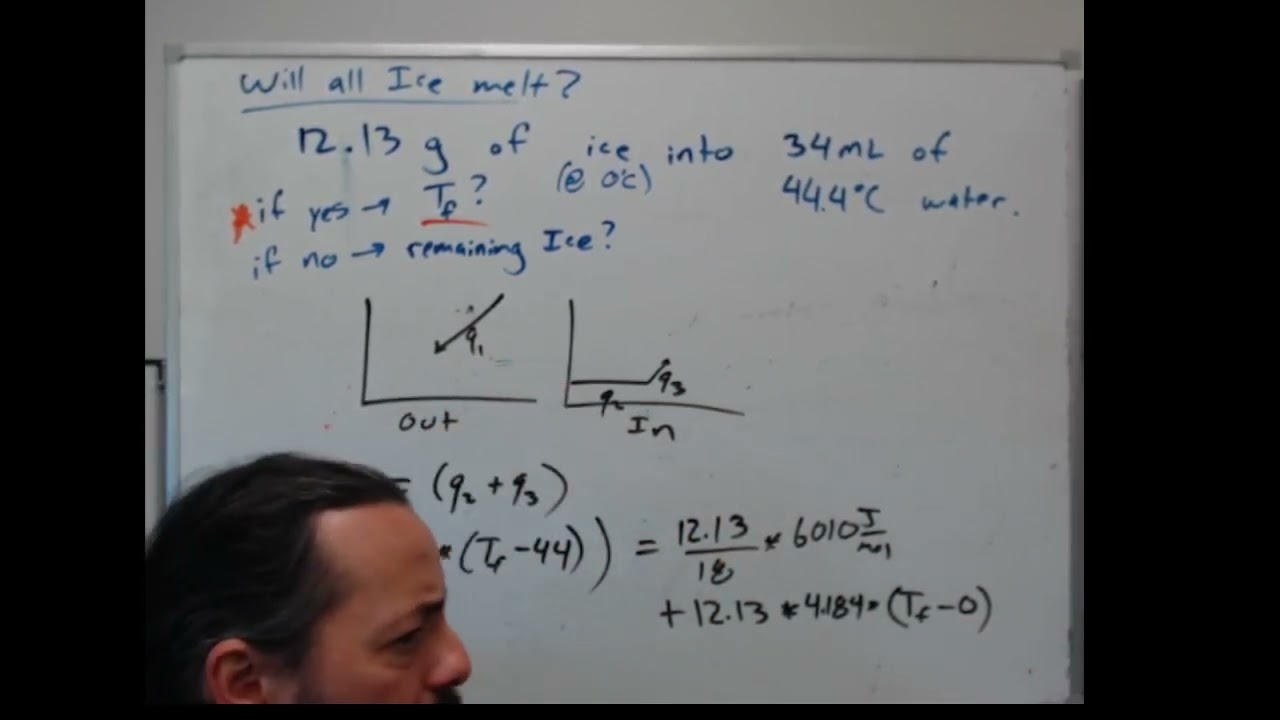 Will all Ice melt?
12.13 g of ice into 34 mL of
(@ 0°C) 44.4°C water.
*if yes → Tf?
if no → remaining Ice?
q1
q2 q3
Out In
= (q2 + q3)
*(Tf - 44)) = 12.13/18 * 6010 J/mol
+ 12.13 * 4.184 * (Tf - 0)